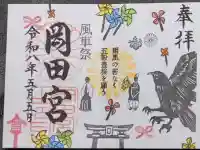 奉拝
風車祭
順風の若なく
五穀豊穣を願う
岡田宮
令和八年五月五日